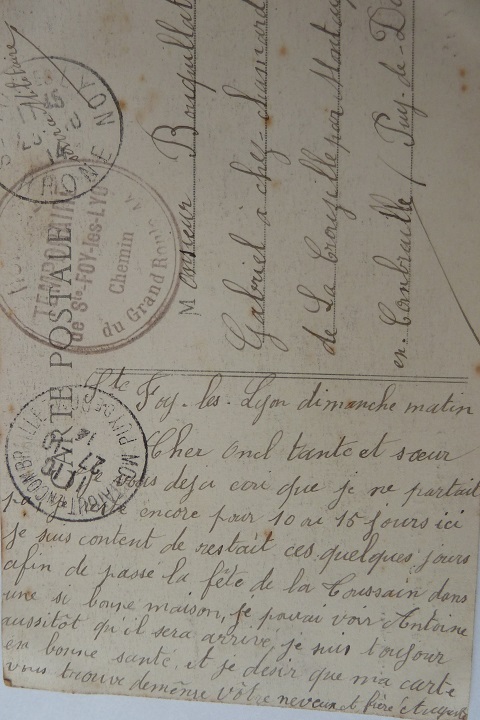 CARTE POSTALE
TEMPORAIRE
de Ste-FOY-les-LYON
Chemin
du Grand Roule
RHONE
MONTAIGUT-EN-COMBRAILLE PUY-DE-DOME
27
Monsieur Bouquillat
Gabriel à chez chamard
de La Crouzille par Montaigut
en Combraille (Puy-de-Do
Ste Foy-les-Lyon dimanche matin
Cher Oncl tante et sœur
vous deja ecri que je ne partait
encore pour 10 au 15 jours ici
je suis content de restait ces quelques jours
afin de passé la fête de la Toussain dans
une si bonne maison, je pouai voir Antoine
aussitôt qu'il sera arrivé, je suis toujour
en bonne santé, et je désir que ma carte
vous trouve demême vôtre neveu et frère